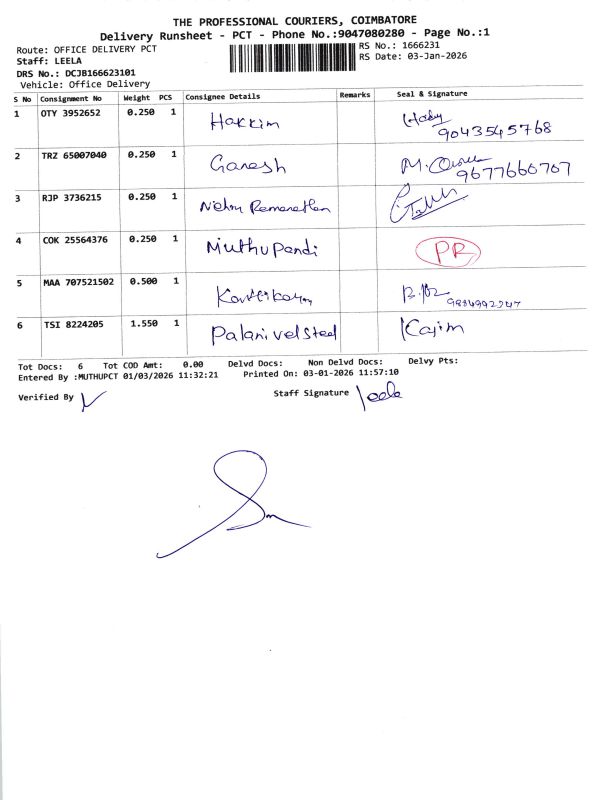 THE PROFESSIONAL COURIERS, COIMBATORE
Delivery Runsheet - PCT - Phone No.:9047080280 - Page No.:1
Route: OFFICE DELIVERY PCT RS No.: 1666231
Staff: LEELA RS Date: 03-Jan-2026
DRS No.: DCJB166623101
Vehicle: Office Delivery
S No Consignment No Weight PCS Consignee Details Remarks Seal & Signature
1 OTY 3952652 0.250 1 Hakkim
9043545768
2 TRZ 65007040 0.250 1 Ganesh
9677660707
3 RJP 3736215 0.250 1
4 COK 25564376 0.250 1 Muthupandi PR
5 MAA 707521502 0.500 1
6 TSI 8224205 1.550 1 Palanivelsteel Kajim
Tot Docs: 6 Tot COD Amt: 0.00 Delvd Docs: Non Delvd Docs: Delvy Pts:
Entered By :MUTHUPCT 01/03/2026 11:32:21 Printed On: 03-01-2026 11:57:10
Verified By Staff Signature leela